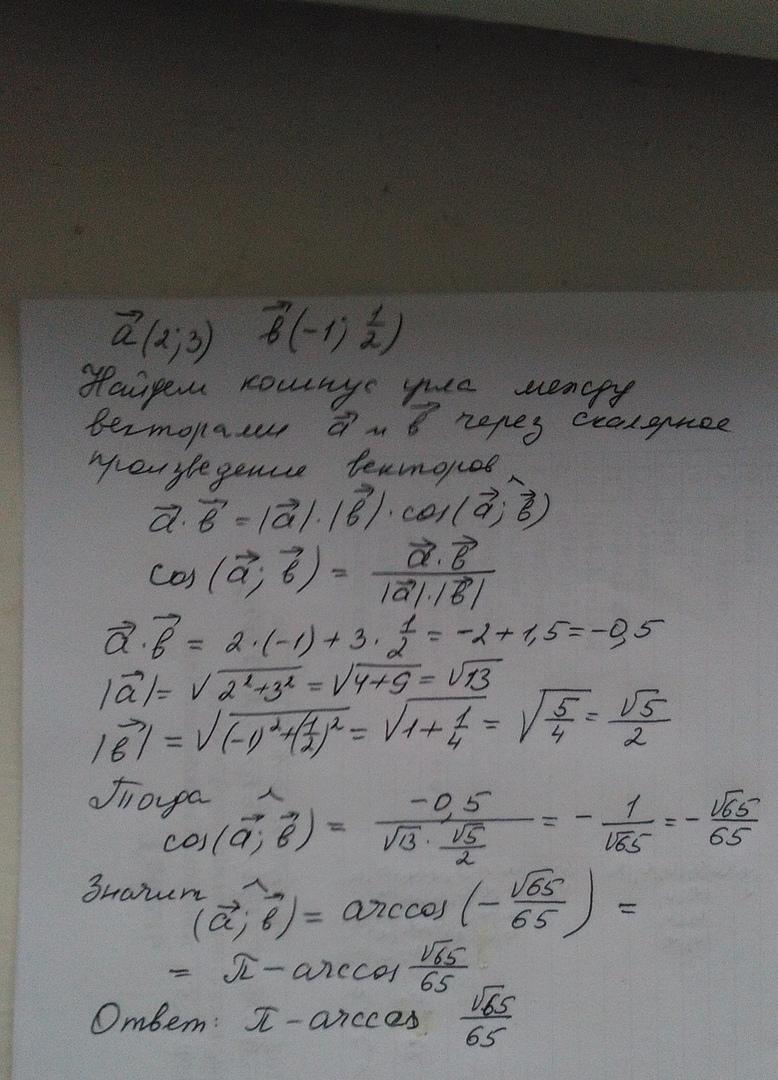 a⃗(2;3) b⃗(-1; 1/2)
Найдем косинус угла между
векторами a⃗ и b⃗ через скалярное
произведение векторов
a⃗·b⃗ = |a⃗|·|b⃗|·cos(a⃗;^b⃗)
cos(a⃗; b⃗) = (a⃗·b⃗)/(|a⃗|·|b⃗|)
a⃗·b⃗ = 2·(-1)+3·1/2 = -2+1,5=-0,5
|a⃗|= √(2²+3²) = √(4+9) = √13
|b⃗| = √((-1)²+(1/2)²) = √(1+1/4) = √(5/4) = √5/2
Тогда
cos(a⃗;^b⃗) = -0,5/(√13·√5/2) = -1/√65 = -√65/65
Значит
(a⃗;^b⃗) = arccos(-√65/65) =
= π - arccos √65/65
Ответ: π - arccos √65/65